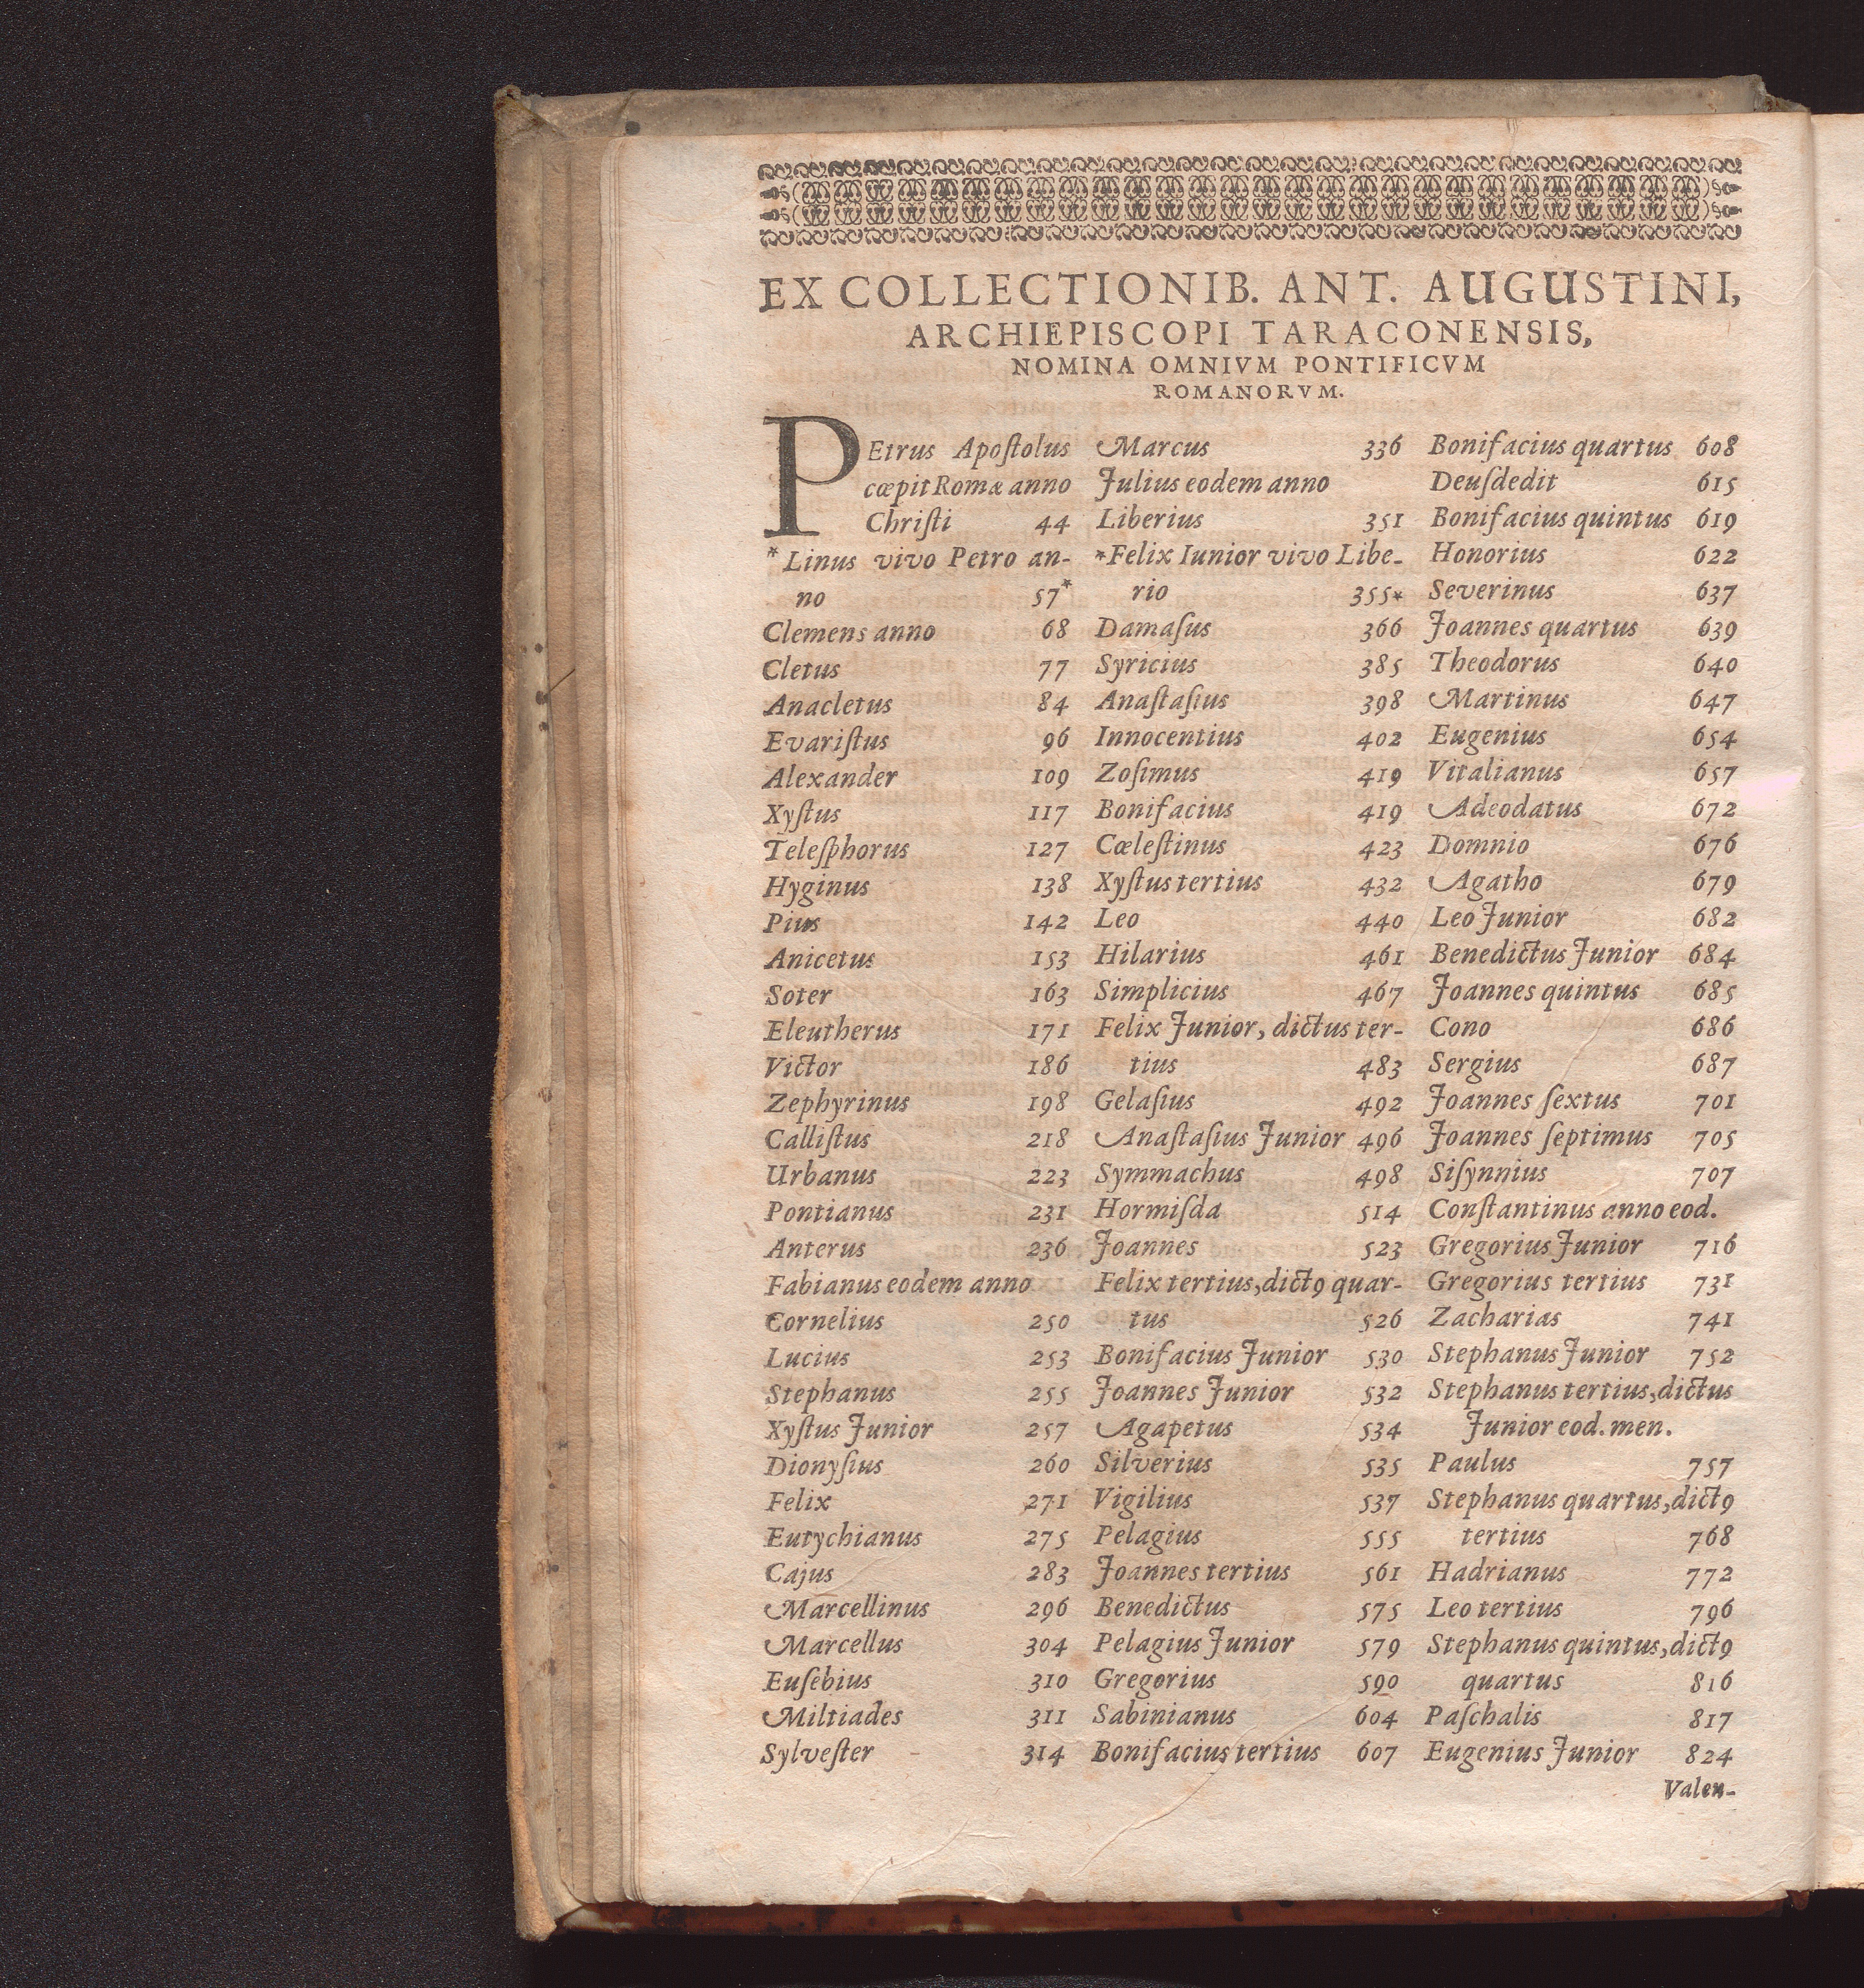 EX COLLECTIONIB. ANT. AUGUSTINI,
ARCHIEPISCOPI TARACONENSIS,
NOMINA OMNIVM PONTIFICVM
ROMANORVM.
PEtrus Apoſtolus
cœpit Romæ anno
Chriſti 44
* Linus vivo Petro an-
no 57*
Clemens anno 68
Cletus 77
Anacletus 84
Evariſtus 96
Alexander 109
Xyſtus 117
Teleſphorus 127
Hyginus 138
Pius 142
Anicetus 153
Soter 163
Eleutherus 171
Victor 186
Zephyrinus 198
Calliſtus 218
Urbanus 223
Pontianus 231
Anterus 236
Fabianus eodem anno
Cornelius 250
Lucius 253
Stephanus 255
Xyſtus Junior 257
Dionyſius 260
Felix 271
Eutychianus 275
Cajus 283
Marcellinus 296
Marcellus 304
Euſebius 310
Miltiades 311
Sylveſter 314
Marcus 336
Julius eodem anno
Liberius 351
*Felix Iunior vivo Libe-
rio 355*
Damaſus 366
Syricius 385
Anaſtaſius 398
Innocentius 402
Zoſimus 419
Bonifacius 419
Cœleſtinus 423
Xyſtus tertius 432
Leo 440
Hilarius 461
Simplicius 467
Felix Junior, dictus ter-
tius 483
Gelaſius 492
Anaſtaſius Junior 496
Symmachus 498
Hormiſda 514
Joannes 523
Felix tertius, dictꝯ quar-
tus 526
Bonifacius Junior 530
Joannes Junior 532
Agapetus 534
Silverius 535
Vigilius 537
Pelagius 555
Joannes tertius 561
Benedictus 575
Pelagius Junior 579
Gregorius 590
Sabinianus 604
Bonifacius tertius 607
Bonifacius quartus 608
Deuſdedit 615
Bonifacius quintus 619
Honorius 622
Severinus 637
Joannes quartus 639
Theodorus 640
Martinus 647
Eugenius 654
Vitalianus 657
Adeodatus 672
Domnio 676
Agatho 679
Leo Junior 682
Benedictus Junior 684
Joannes quintus 685
Cono 686
Sergius 687
Joannes ſextus 701
Joannes ſeptimus 705
Siſynnius 707
Conſtantinus anno eod.
Gregorius Junior 716
Gregorius tertius 731
Zacharias 741
Stephanus Junior 752
Stephanus tertius, dictus
Junior eod. men.
Paulus 757
Stephanus quartus, dictꝯ
tertius 768
Hadrianus 772
Leo tertius 796
Stephanus quintus, dictꝯ
quartus 816
Paſchalis 817
Eugenius Junior 824
Valen-